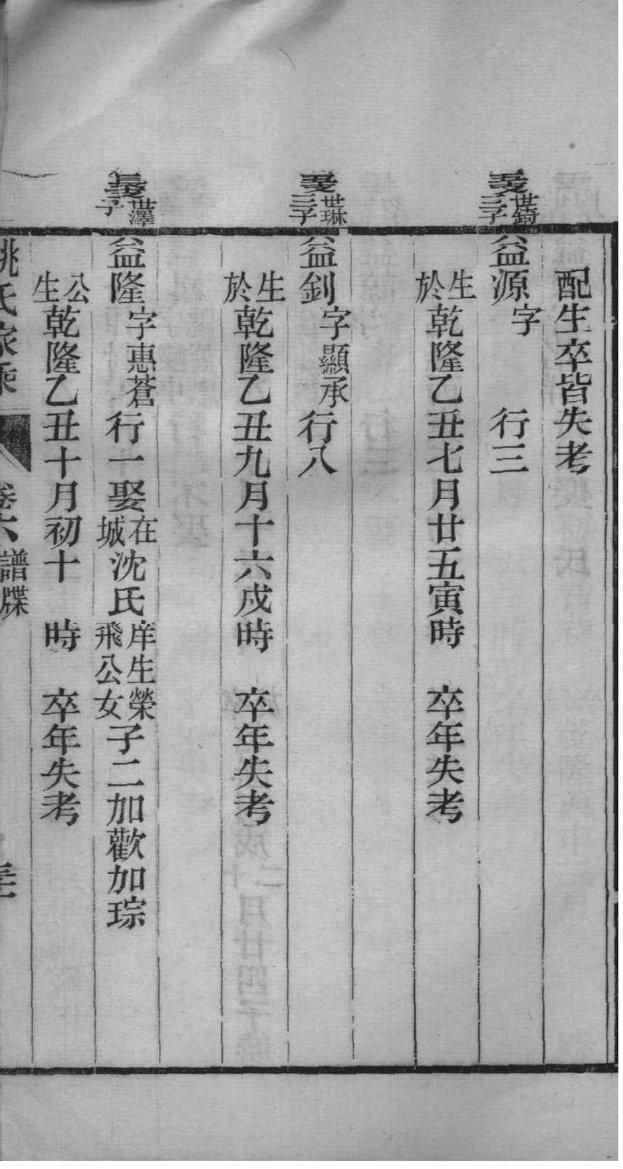 配生卒皆失考
世錡三子
益源字 行三
生於乾隆乙丑七月廿五寅時 卒年失考
世琳三子
益釗字顯承行八
生於乾隆乙丑九月十六戍時 卒年失考
世澤長子
益隆字惠蒼行一娶在城沈氏庠生榮飛公女子二加歡加琮
公生乾隆乙丑十月初十 時 卒年失考
姚氏家乘 卷六 譜牒